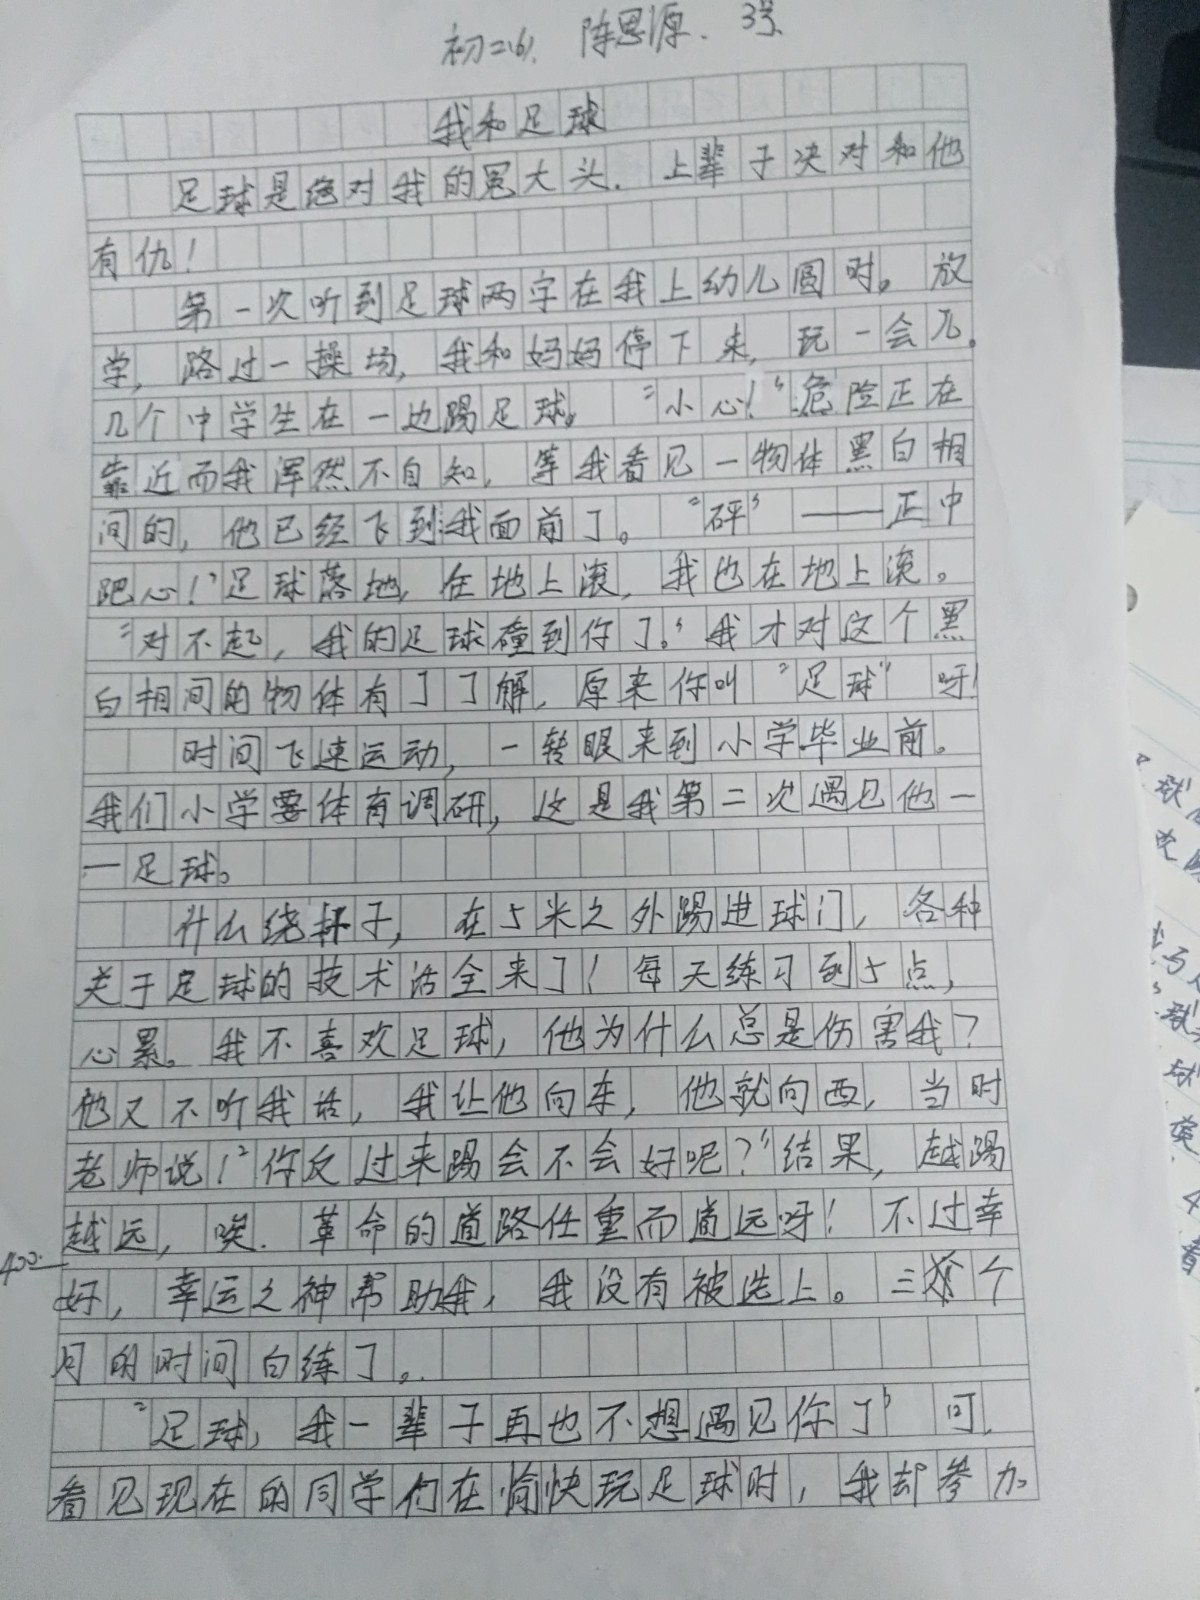 初二(6). 陈思源. 3号
我和足球
足球是绝对我的冤大头.上辈子决对和他
有仇!
第一次听到足球两字在我上幼儿圆时。放
学,路过一操场,我和妈妈停下来,玩一会儿。
几个中学生在一边踢足球。"小心!"危险正在
靠近而我浑然不自知,等我看见一物体黑白相
间的,他已经飞到我面前了。"砰"——正中
耙心!"足球落地,在地上滚,我也在地上滚。
"对不起,我的足球碰到你了。"我才对这个黑
白相间的物体有了了解,原来你叫"足球"呀!
时间飞速运动,一转眼来到小学毕业前。
我们小学要体育调研,这是我第二次遇见他一
一足球。
什么绕杯子,在5米之外踢进球门,各种
关于足球的技术活全来了!每天练习到5点,
心累。我不喜欢足球,他为什么总是伤害我?
他又不听我话,我让他向东,他就向西,当时
老师说!"你反过来踢会不会好呢?"结果,越踢
越远,唉.革命的道路任重而道远呀!不过幸
400
好,幸运之神帮助我,我没有被选上。三个
月的时间白练了。
"足球,我一辈子再也不想遇见你了"可,
看见现在的同学们在愉快玩足球时,我却参加